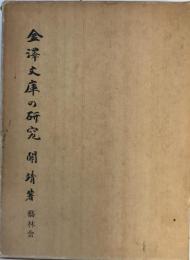 金澤文庫の研究 関靖著 藝林舎